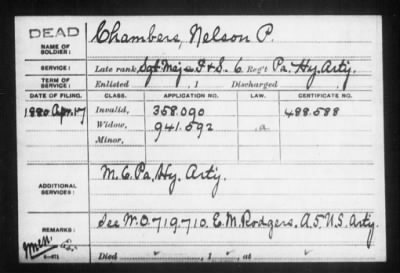 DEAD
NAME OF SOLDIER: Chambers, Nelson P.
SERVICE: Late rank, Sgt Maj F & S. 6 Reg't Pa. Hy. Arty.
TERM OF SERVICE: Enlisted , 1 Discharged
DATE OF FILING. CLASS. APPLICATION NO. LAW. CERTIFICATE NO.
1880 Apr. 17 Invalid, 358.090 488.588
Widow, 941.592 a
Minor,
ADDITIONAL SERVICES: M. C. Pa. Hy. Arty.
REMARKS: See W.O. 719.710. E. M. Rodgers, A 5" U.S. Arty.
Died , 1 , at